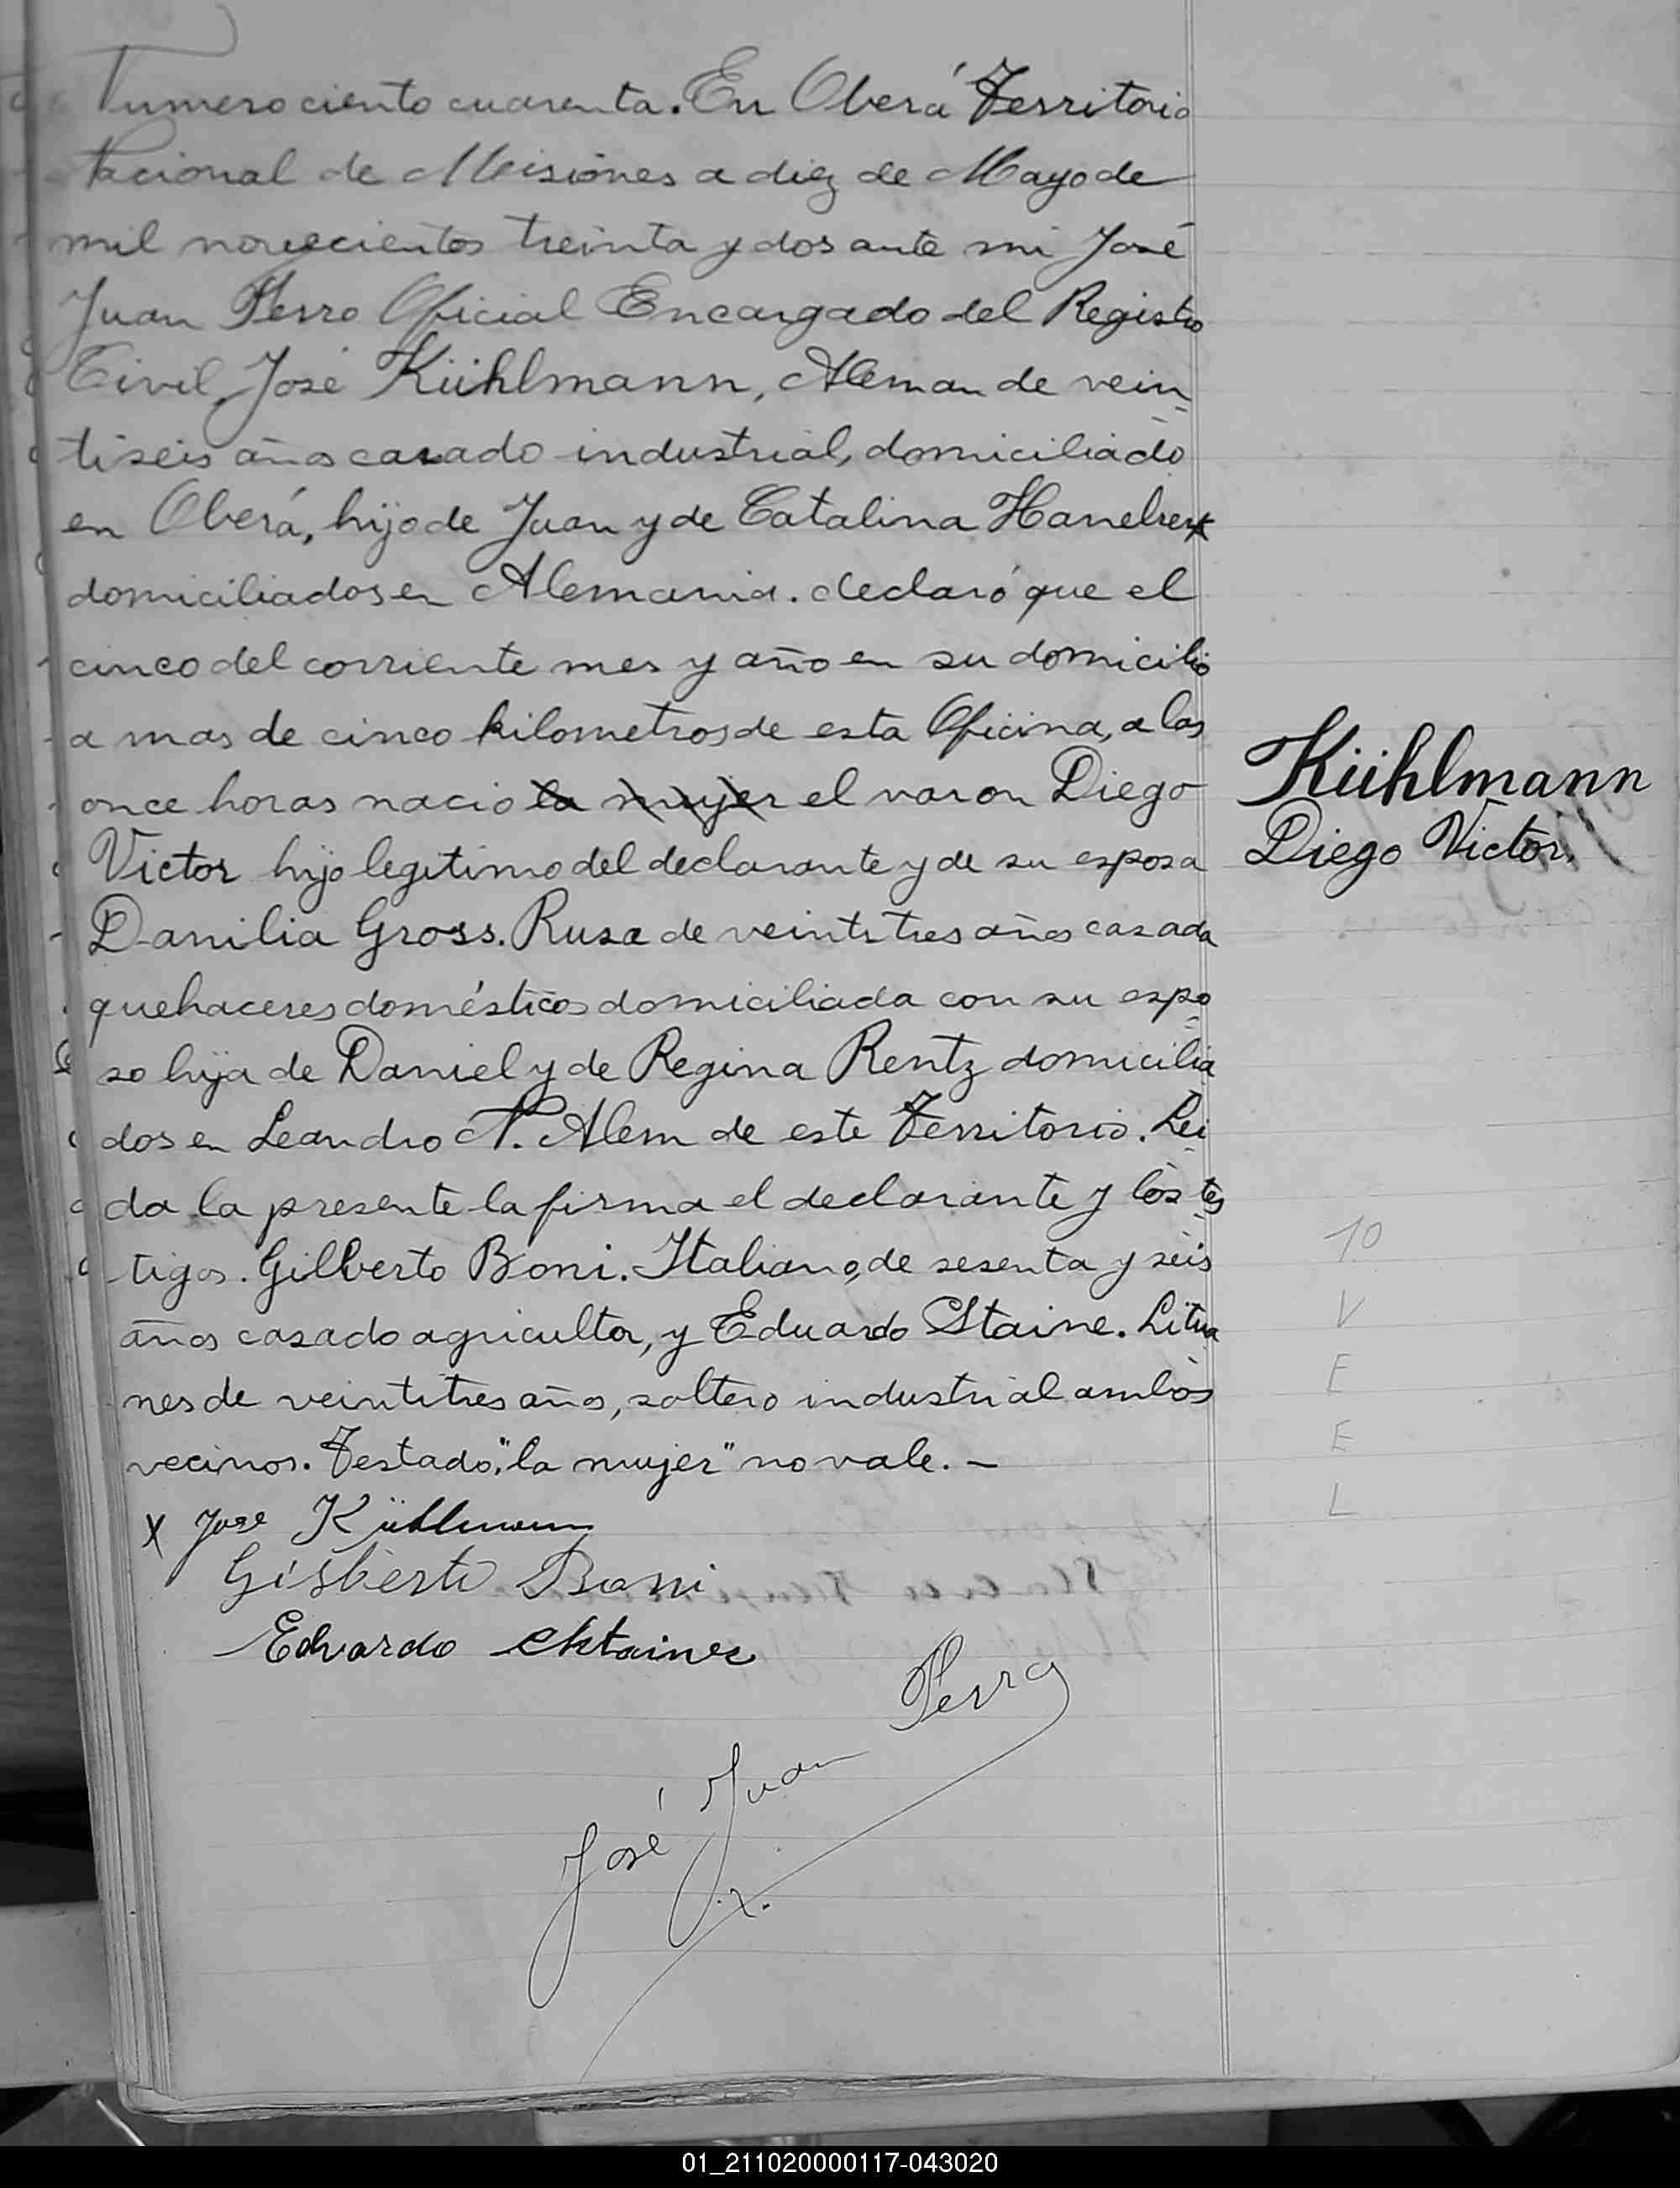 Numero ciento cuarenta. En Oberá Territorio
Nacional de Misiones a diez de Mayo de
mil novecientos treinta y dos ante mi José
Juan Perro Oficial Encargado del Registro
Civil, José Kühlmann, Aleman de vein
tiseis años casado industrial, domiciliado
en Oberá, hijo de Juan y de Catalina
domiciliados en Alemania. declaró que el
cinco del corriente mes y año en su domicilio
a mas de cinco kilometros de esta Oficina, a las
once horas nacio la mujer el varon Diego
Victor hijo legitimo del declarante y de su esposa
Danilia Gross. Rusa de veintitres años casada
quehaceres domésticos domiciliada con su espo
so hija de Daniel y de Regina Rentz domicilia
dos en Leandro N. Alem de este Territorio. Lei
da la presente la firma el declarante y los tes
tigos. Gilberto Boni. Italiano, de sesenta y seis
años casado agricultor, y Eduardo Staine. Litua
nes de veintitres años, soltero industrial ambos
vecinos. Testado: "la mujer" no vale. —
X Jose Kühlmann
Gisberto Boni
Edvardo
José Juan Perro
Kühlmann
Diego Victor.
10
V
E
E
L
01_211020000117-043020